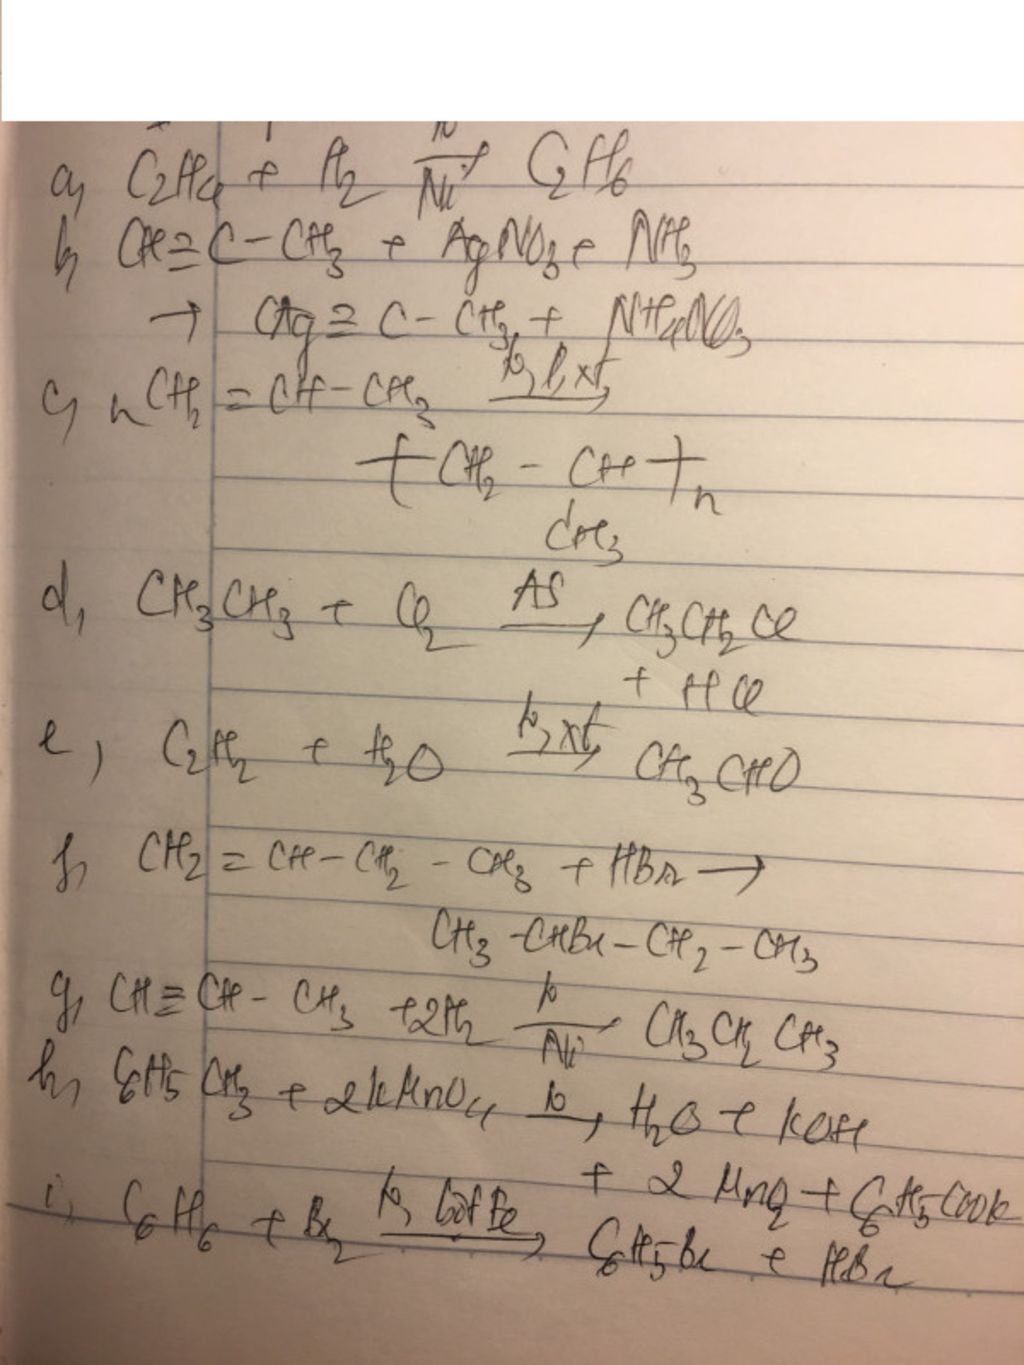 a, C2H4 + H2 →(to, Ni) C2H6
b, CH≡C-CH3 + AgNO3 + NH3
→ CAg≡C-CH3 + NH4NO3
c, nCH2=CH-CH3 →(to, p, xt)
(-CH2-CH-)n
CH3
d, CH3CH3 + Cl2 →(AS) CH3CH2Cl
+ HCl
e, C2H2 + H2O →(to, xt) CH3CHO
f, CH2=CH-CH2-CH3 + HBr →
CH3-CHBr-CH2-CH3
g, CH≡CH-CH3 +2H2 →(to, Ni) CH3CH2CH3
h, C6H5CH3 + 2KMnO4 →(to) H2O + KOH
+ 2MnO2 + C6H5COOK
i, C6H6 + Br2 →(to, bột Fe) C6H5Br + HBr